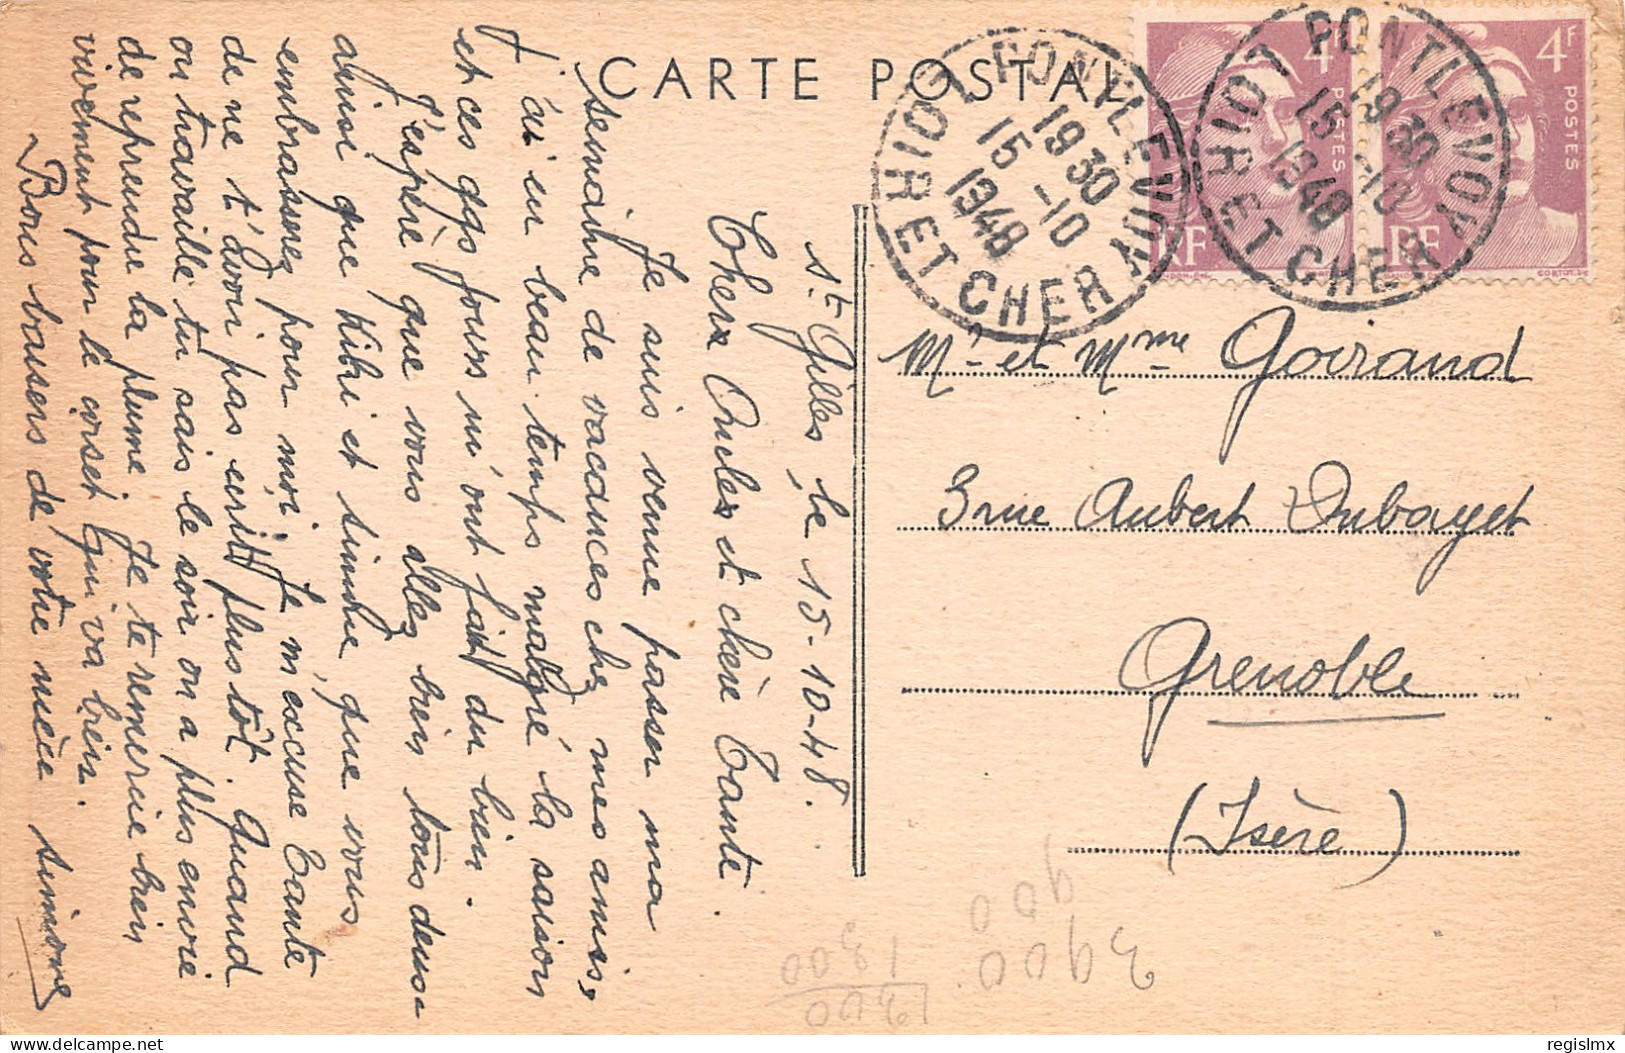 CARTE POSTALE
PONTLEVOY
LOIR ET CHER
19 30
15 -10
1948
PONTLEVOY
LOIR ET CHER
19 30
15 -10
1948
4F
POSTES
RF
4F
POSTES
RF
CORTOT
St Gilles, le 15-10-48.
Chers Oncles et chère Tante.
Je suis venue passer ma
semaine de vacances chez mes amis,
J'ai eu beau temps malgré la saison
et ces qqs jours m'ont fait du bien.
J'espère que vous allez bien tous deux
ainsi que Kiki et
, que vous
embrasserez pour moi. Je m'excuse Tante
de ne t'avoir pas écrit plus tôt. Quand
on travaille tu sais le soir on a plus envie
de reprendre la plume. Je te remercie bien
vivement pour le corset qui va bien.
Bons baisers de votre nièce Simone
Mr et Mme Goirand
3 rue Aubert Dubayet
Grenoble
(Isère)
900
3900
1300
1300
regislmx
delcampe.net